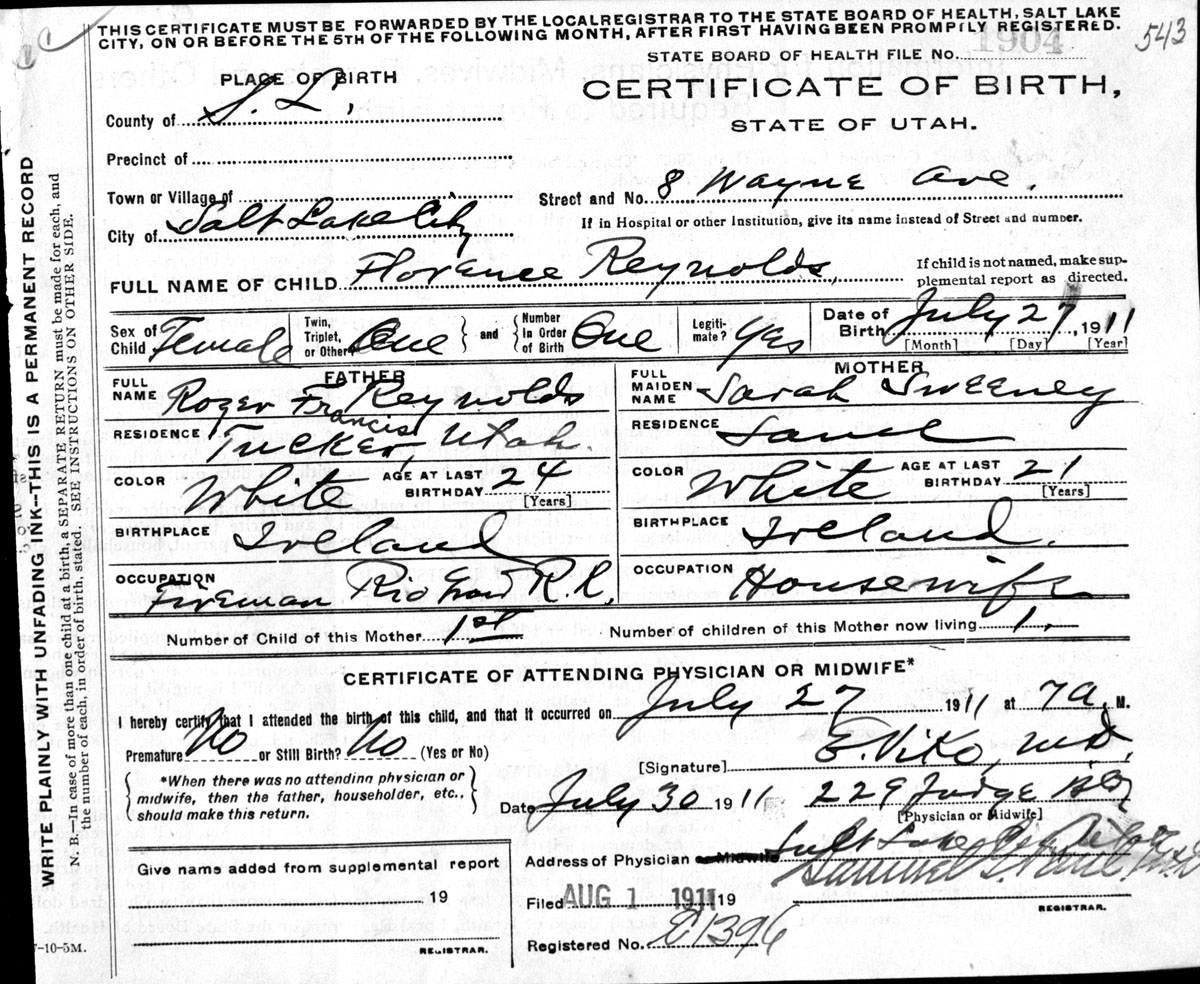 THIS CERTIFICATE MUST BE FORWARDED BY THE LOCAL REGISTRAR TO THE STATE BOARD OF HEALTH, SALT LAKE
CITY, ON OR BEFORE THE 5TH OF THE FOLLOWING MONTH, AFTER FIRST HAVING BEEN PROMPILY REGISTERED.
543
STATE BOARD OF HEALTH FILE NO. 1904
PLACE OF BIRTH
CERTIFICATE OF BIRTH,
STATE OF UTAH.
County of S. L.
Precinct of
Town or Village of
Street and No. 8 Wayne Ave.
City of Salt Lake City
If in Hospital or other Institution, give its name instead of Street and number.
FULL NAME OF CHILD Florence Reynolds,
If child is not named, make sup-
plemental report as directed.
Sex of Child Female
Twin, Triplet, or Other? One and Number in Order of Birth One
Legiti-mate? Yes
Date of Birth July 27, 1911
[Month] [Day] [Year]
FATHER
FULL NAME Roger Francis Reynolds
RESIDENCE Tucker, Utah.
COLOR White AGE AT LAST BIRTHDAY 24 [Years]
BIRTHPLACE Ireland
OCCUPATION Fireman Rio Grand R.R.
MOTHER
FULL MAIDEN NAME Sarah Sweeney
RESIDENCE Same
COLOR White AGE AT LAST BIRTHDAY 21 [Years]
BIRTHPLACE Ireland
OCCUPATION Housewife
Number of Child of this Mother 1st Number of children of this Mother now living 1.
CERTIFICATE OF ATTENDING PHYSICIAN OR MIDWIFE*
I hereby certify that I attended the birth of this child, and that it occurred on July 27 1911 at 7 a. M.
Premature No or Still Birth? No (Yes or No)
[Signature] E. Viko, M.D.
*When there was no attending physician or
midwife, then the father, householder, etc.,
should make this return.
Date July 30 1911 229 Judge Bldg
[Physician or Midwife]
Address of Physician or Midwife Salt Lake City
Give name added from supplemental report
19
REGISTRAR.
Filed AUG 1 1911 19
Samuel G. Paul
REGISTRAR.
Registered No. 1396
7-10-5M.
WRITE PLAINLY WITH UNFADING INK--THIS IS A PERMANENT RECORD
N. B.--In case of more than one child at a birth, a SEPARATE RETURN must be made for each, and
the number of each, in order of birth, stated. (SEE INSTRUCTIONS ON OTHER SIDE.